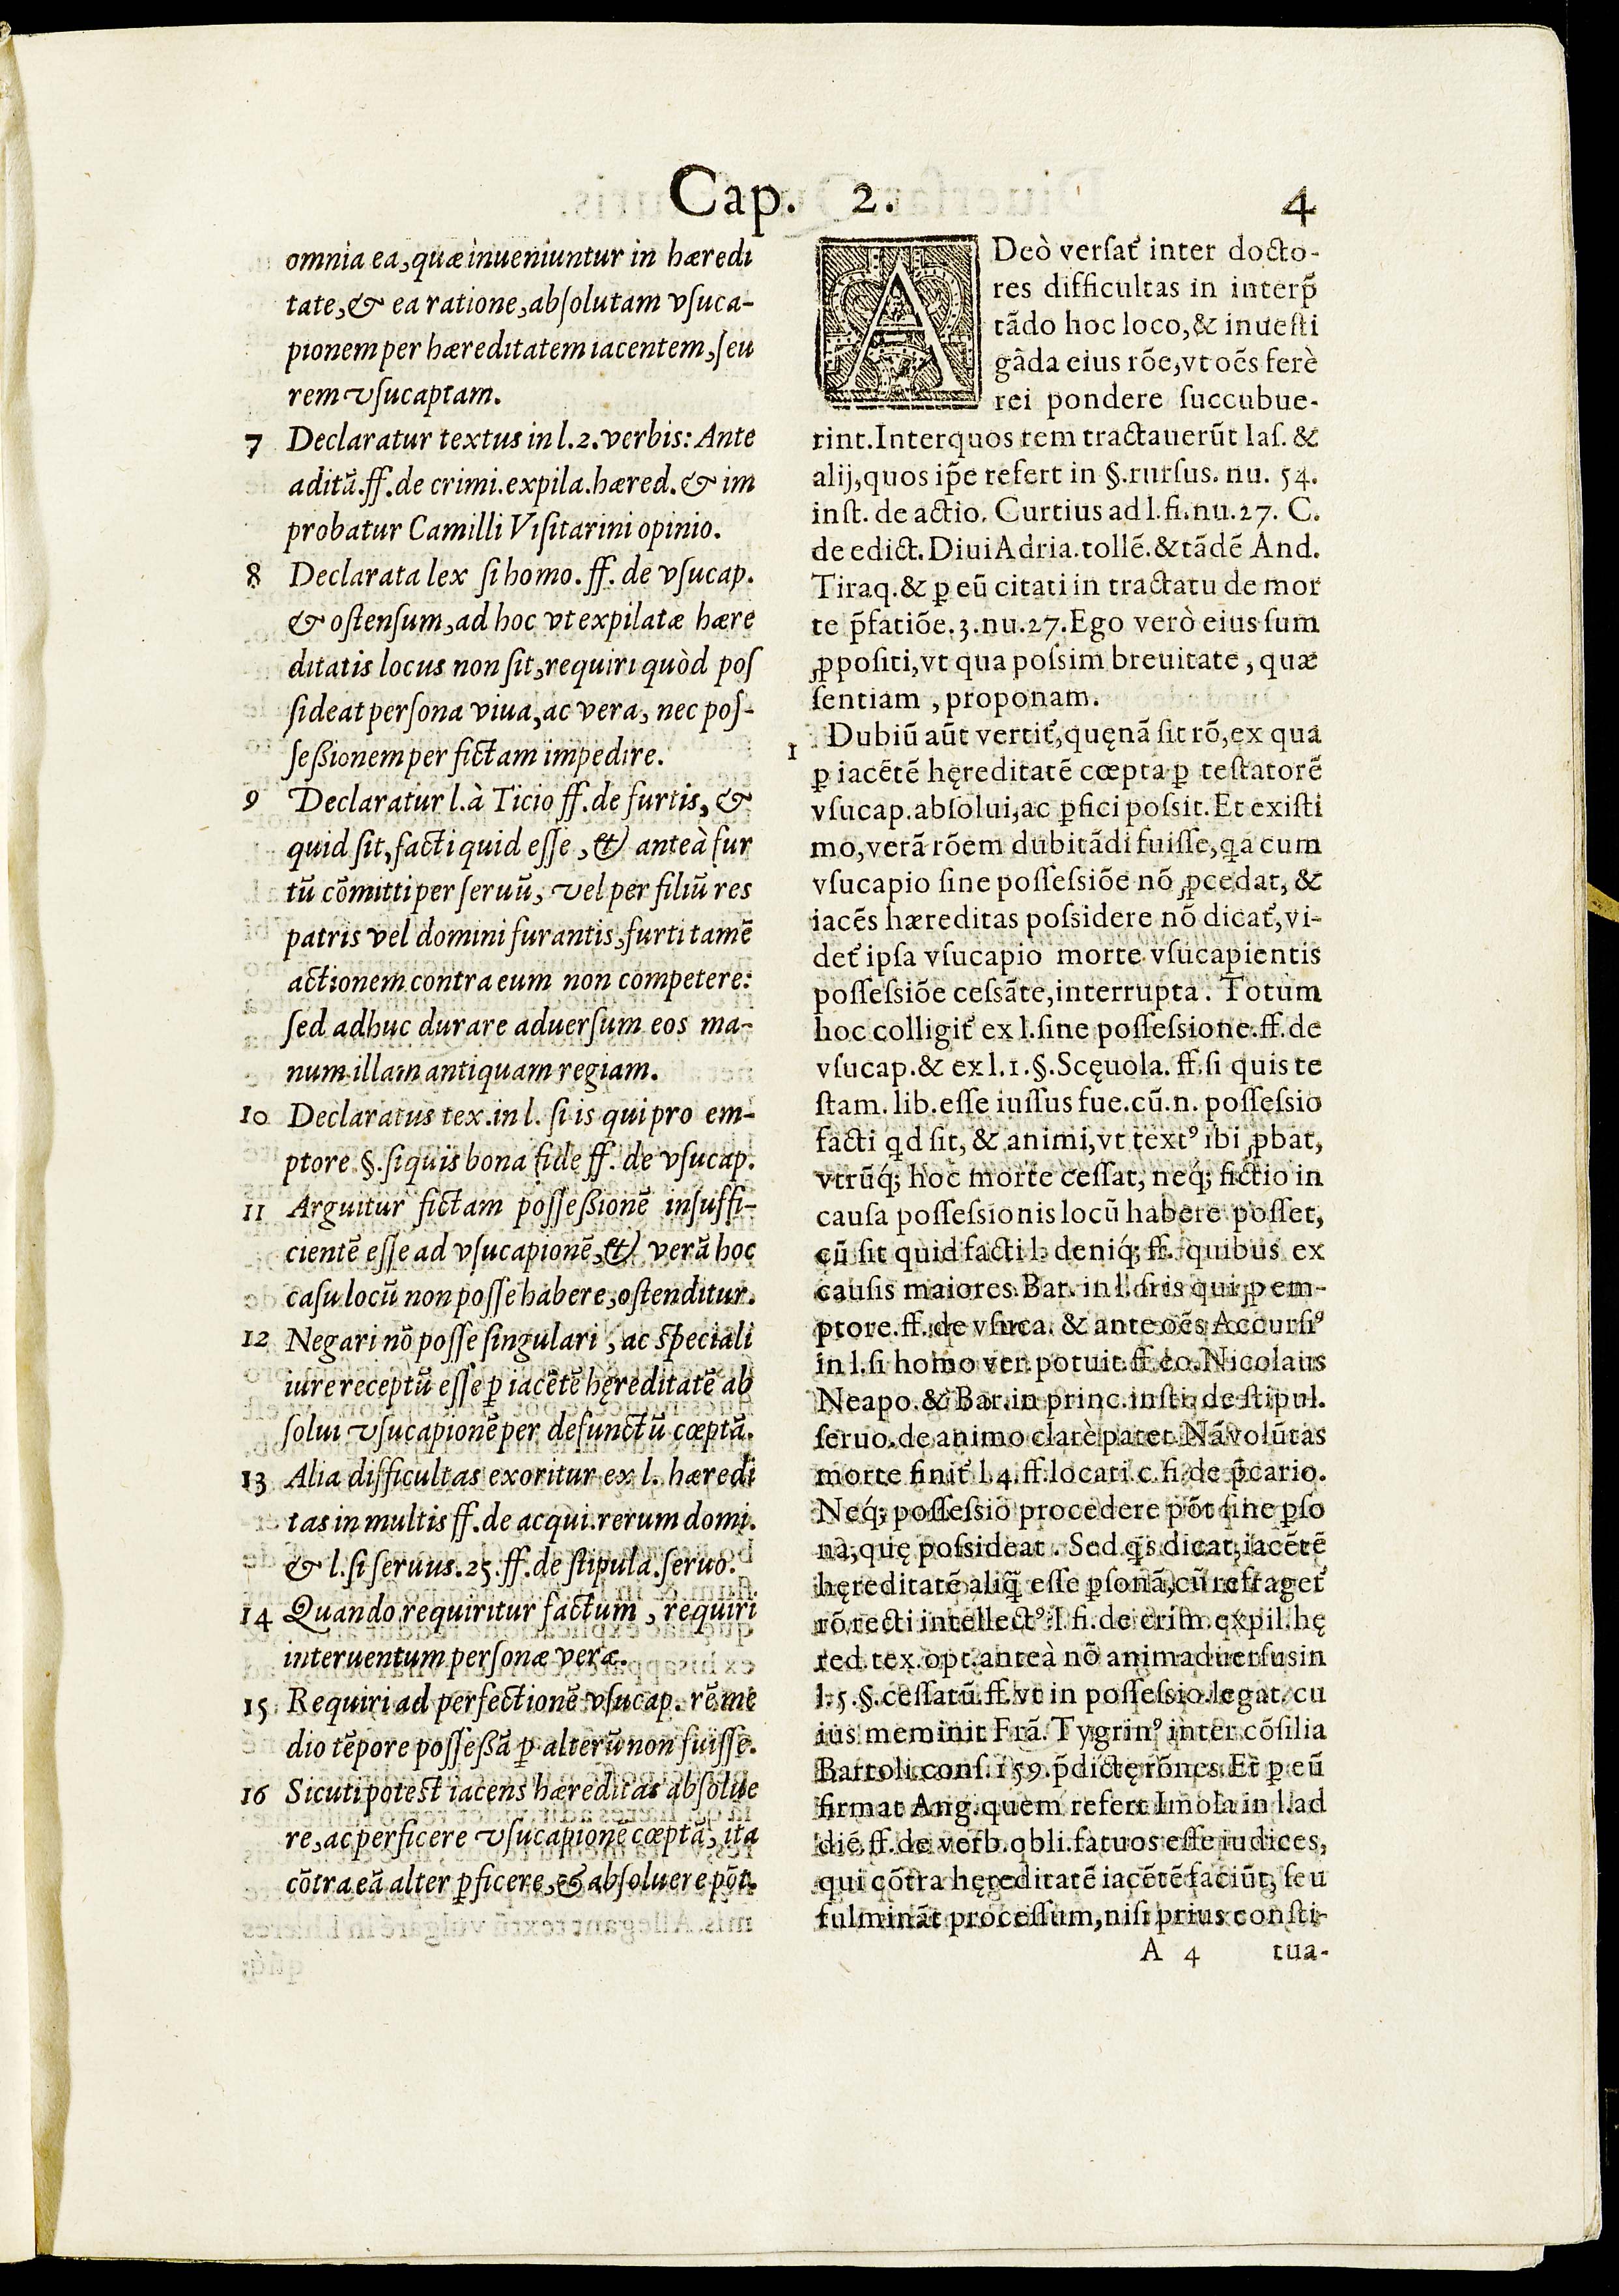 Cap. 2. 4
omnia ea, quæ inueniuntur in hæredi
tate, & ea ratione, absolutam vsuca-
pionem per hæreditatem iacentem, seu
rem vsucaptam.
7 Declaratur textus in l. 2. verbis: Ante
aditū. ff. de crimi. expila. hæred. & im
probatur Camilli Visitarini opinio.
8 Declarata lex si homo. ff. de vsucap.
& ostensum, ad hoc vt expilatæ hære
ditatis locus non sit, requiri quòd pos
sideat persona viua, ac vera, nec pos-
seßionem per fictam impedire.
9 Declaratur l. à Ticio ff. de furtis, &
quid sit, facti quid esse, & anteà fur
tū cōmitti per seruū, vel per filiū res
patris vel domini furantis, furti tamē
actionem contra eum non competere:
sed adhuc durare aduersum eos ma-
num illam antiquam regiam.
10 Declaratus tex. in l. si is qui pro em-
ptore §. si quis bona fide ff. de vsucap.
11 Arguitur fictam posseßionē insuffi-
cientē esse ad vsucapionē, & verā hoc
casu locū non posse habere, ostenditur.
12 Negari nō posse singulari, ac speciali
iure receptū esse ꝑ iacētē hęreditatē ab
solui vsucapionē per defunctū cœptā.
13 Alia difficultas exoritur ex l. hæredi
tas in multis ff. de acqui. rerum domi.
& l. si seruus. 25. ff. de stipula. seruo.
14 Quando requiritur factum, requiri
interuentum personæ veræ.
15 Requiri ad perfectionē vsucap. rē me
dio tēpore posseßā ꝑ alterū non fuisse.
16 Sicuti potest iacens hæreditas absolue
re, ac perficere vsucapionē cœptā, ita
cōtra eā alter ꝑficere, & absoluere pōt.
ADeò versat᷑ inter docto-
res difficultas in interp̄
tādo hoc loco, & inuesti
gāda eius rōe, vt oēs ferè
rei pondere succubue-
rint. Inter quos rem tractauerūt Ias. &
alij, quos ip̄e refert in §. rursus. nu. 54.
inst. de actio. Curtius ad l. fi. nu. 27. C.
de edict. Diui Adria. tollē. & tādē And.
Tiraq. & ꝑ eū citati in tractatu de mor
te p̄fatiōe. 3. nu. 27. Ego verò eius sum
ꝓpositi, vt qua possim breuitate, quæ
sentiam, proponam.
1 Dubiū aūt vertit᷑, quęnā sit rō, ex qua
ꝑ iacētē hęreditatē cœpta ꝑ testatorē
vsucap. absolui, ac ꝑfici possit. Et existi
mo, verā rōem dubitādi fuisse, qa cum
vsucapio sine possessiōe nō ꝓcedat, &
iacēs hæreditas possidere nō dicat᷑, vi-
det᷑ ipsa vsucapio morte vsucapientis
possessiōe cessāte, interrupta. Totum
hoc colligit᷑ ex l. sine possessione. ff. de
vsucap. & ex l. 1. §. Scęuola. ff. si quis te
stam. lib. esse iussus fue. cū. n. possessio
facti qd sit, & animi, vt textꝰ ibi ꝓbat,
vtrūq́; hoc morte cessat, neq́; fictio in
causa possessionis locū habere posset,
cū sit quid facti l. deniq́; ff. quibus ex
causis maiores. Bar. in l. si is qui ꝓ em-
ptore. ff. de vsuca. & ante oēs Accursiꝰ
in l. si homo ver. potuit. ff. eo. Nicolaus
Neapo. & Bar. in princ. insti. de stipul.
seruo. de animo clarè patet. Nā volūtas
morte finit᷑ l. 4. ff. locati c. fi. de p̄cario.
Neq́; possessio procedere pōt sine ꝑso
na, quę possideat. Sed q̄s dicat, iacētē
hęreditatē aliq̄ esse ꝑsonā, cū refraget᷑
rō recti intellectꝰ. l. fi. de crim. expil. hę
red. tex. opt. anteà nō animaduersus in
l. 5. §. cessatū. ff. vt in possessio. legat. cu
ius meminit Frā. Tygrinꝰ inter cōsilia
Bartoli. cons. 159. p̄dictę rōnes. Et ꝑ eū
firmat Ang. quem refert Imola in l. ad
diē. ff. de verb. obli. fatuos esse iudices,
qui cōtra hęreditatē iacētē faciūt, seu
fulmināt processum, nisi prius consti-
A 4 tua-